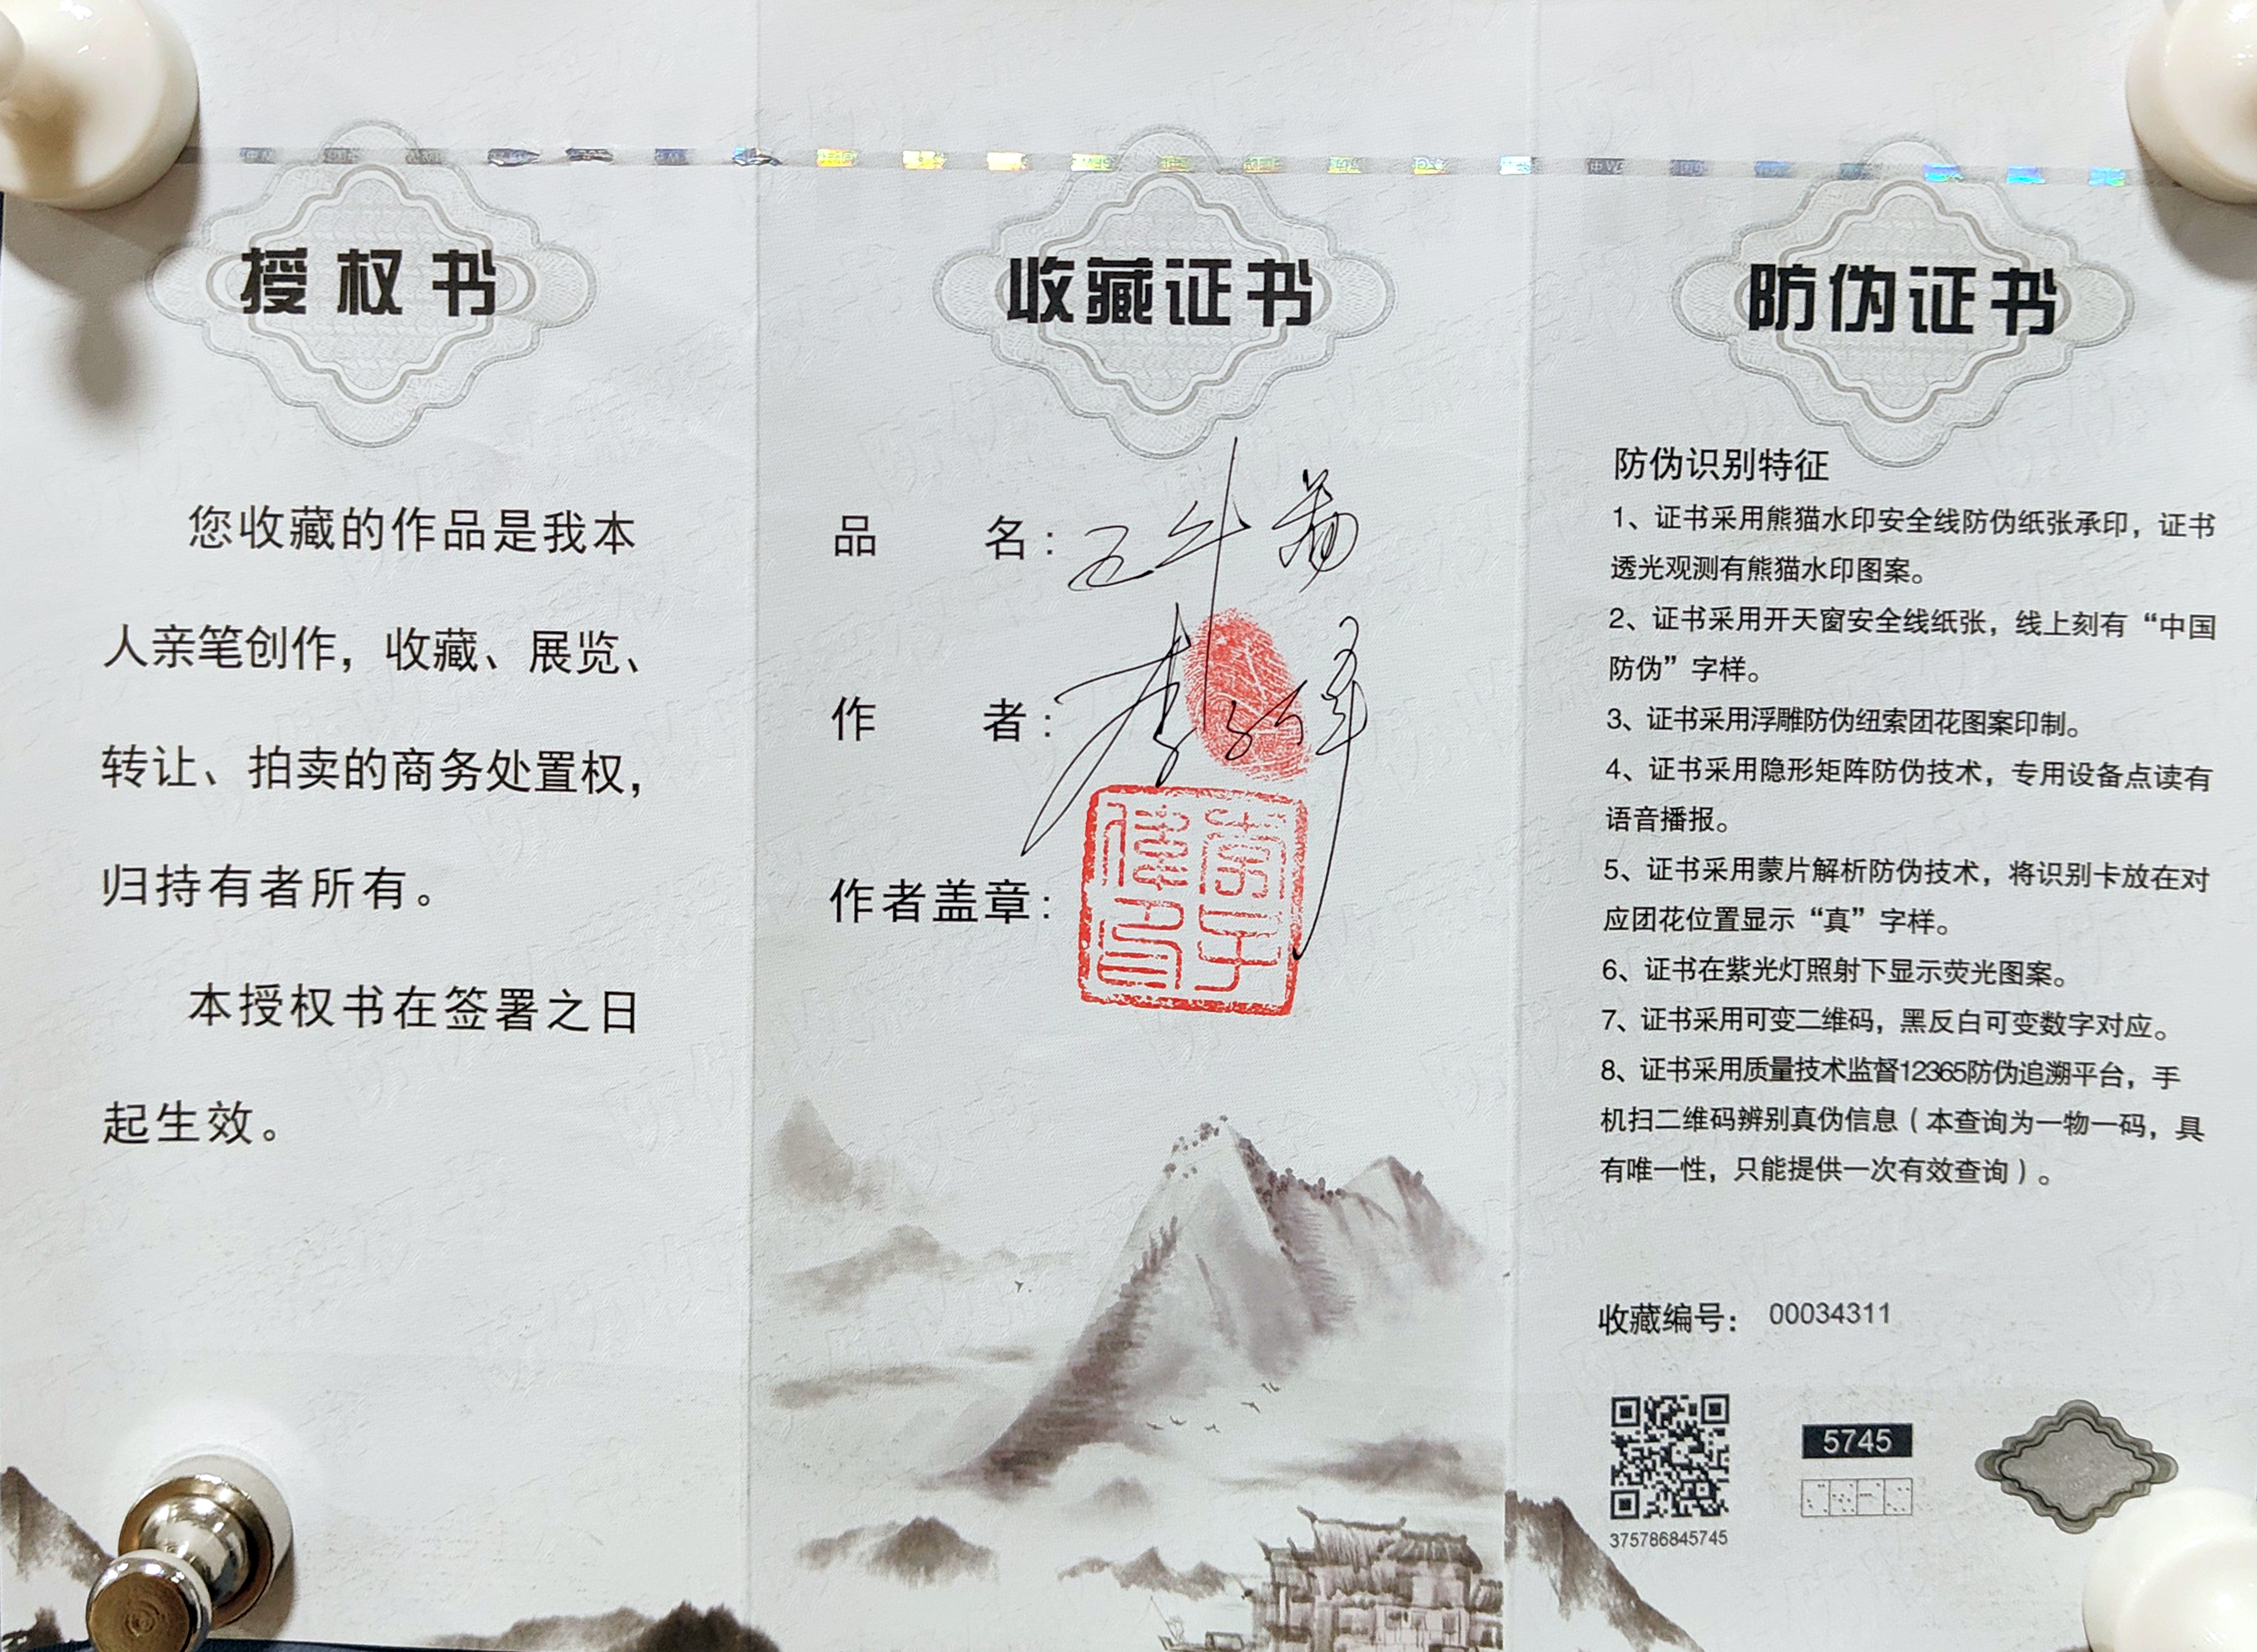 授权书
您收藏的作品是我本
人亲笔创作，收藏、展览、
转让、拍卖的商务处置权，
归持有者所有。
本授权书在签署之日
起生效。
收藏证书
品名：五牛图
作者：李
作者盖章：
防伪证书
防伪识别特征
1、证书采用熊猫水印安全线防伪纸张承印，证书
透光观测有熊猫水印图案。
2、证书采用开天窗安全线纸张，线上刻有“中国
防伪”字样。
3、证书采用浮雕防伪纽索团花图案印制。
4、证书采用隐形矩阵防伪技术，专用设备点读有
语音播报。
5、证书采用蒙片解析防伪技术，将识别卡放在对
应团花位置显示“真”字样。
6、证书在紫光灯照射下显示荧光图案。
7、证书采用可变二维码，黑反白可变数字对应。
8、证书采用质量技术监督12365防伪追溯平台，手
机扫二维码辨别真伪信息（本查询为一物一码，具
有唯一性，只能提供一次有效查询）。
收藏编号：00034311
5745
375786845745